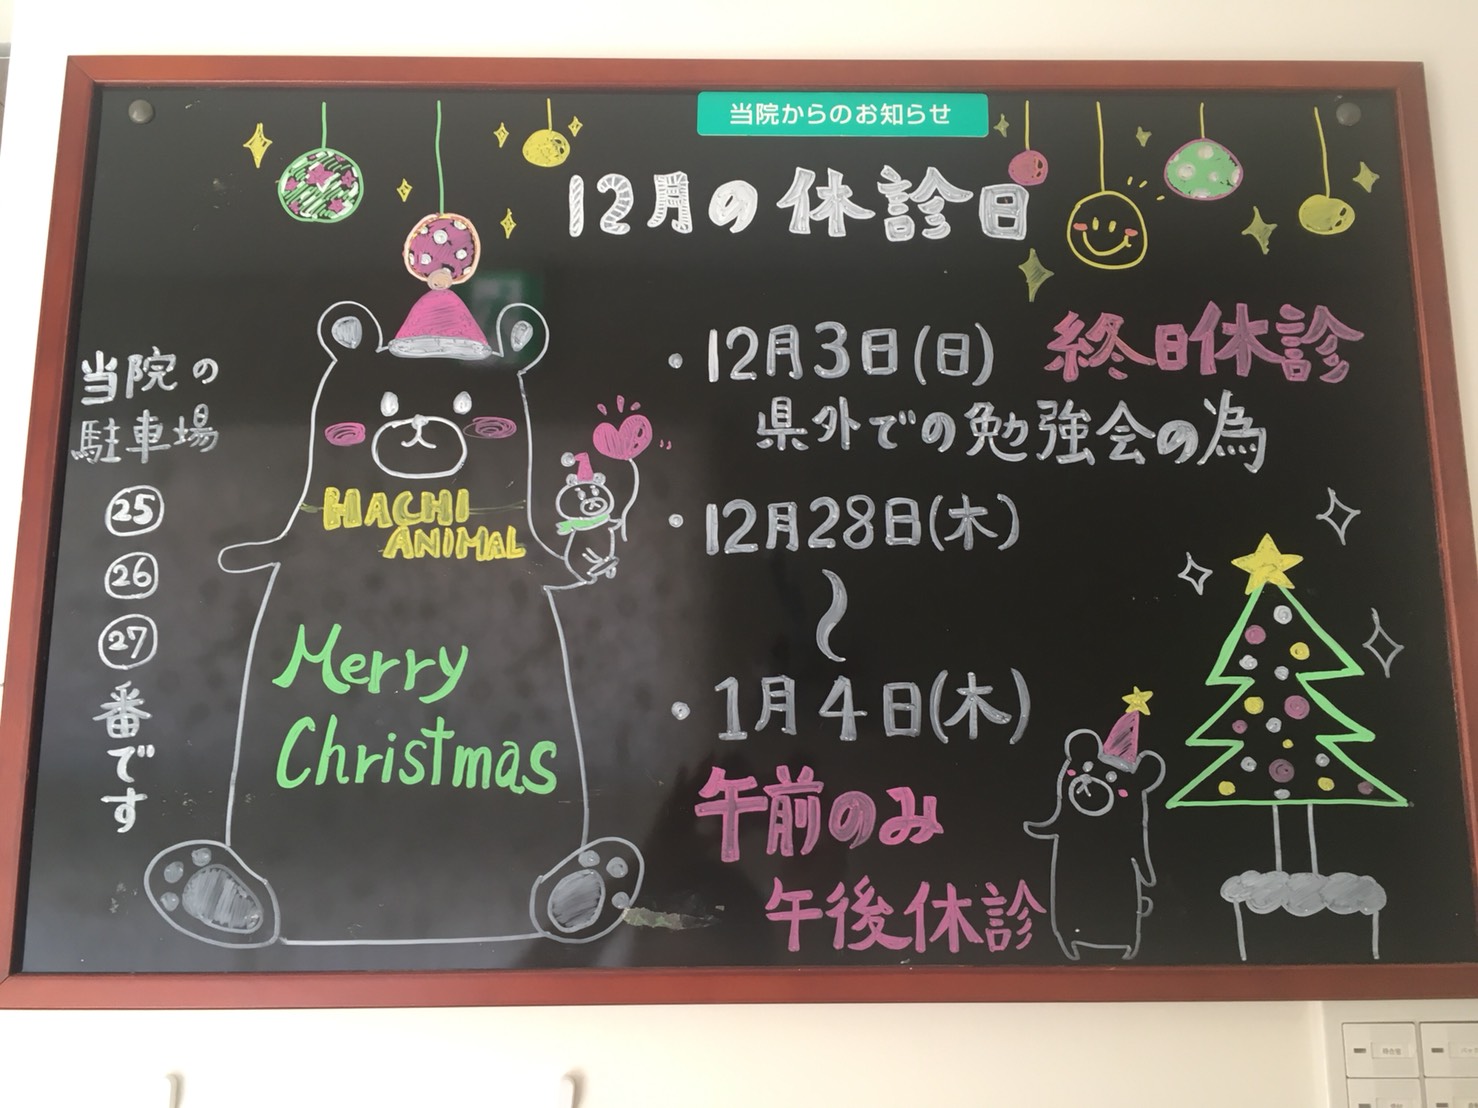 当院からのお知らせ
12月の休診日
・12月3日(日) 終日休診
県外での勉強会の為
・12月28日(木)
〜
・1月4日(木)
午前のみ
午後休診
当院の
駐車場
25
26
27
番です
HACHI
ANIMAL
Merry
Christmas